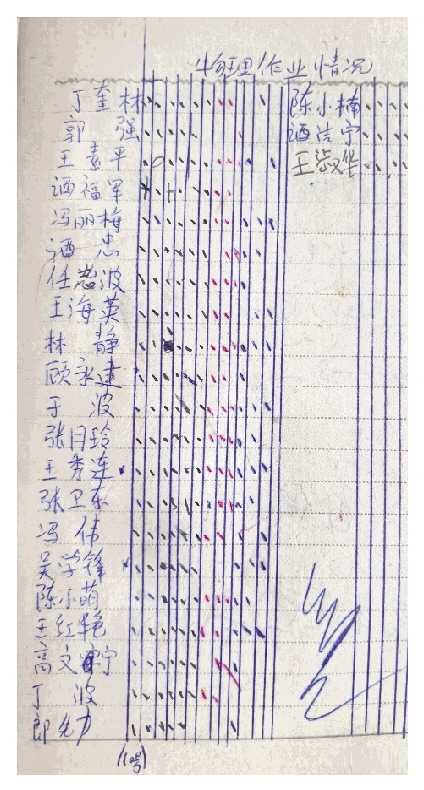 物理作业情况
丁奎林
郭强
王素平
洒福军
冯丽梅
洒忠
任志波
王海英
林静
顾永建
于波
张月玲
王秀连
张卫东
冯伟
吴学锋
陈小萌
王红艳
高文宁
丁波
郎先力
(1号)
陈小楠
洒洁宁
王淑华